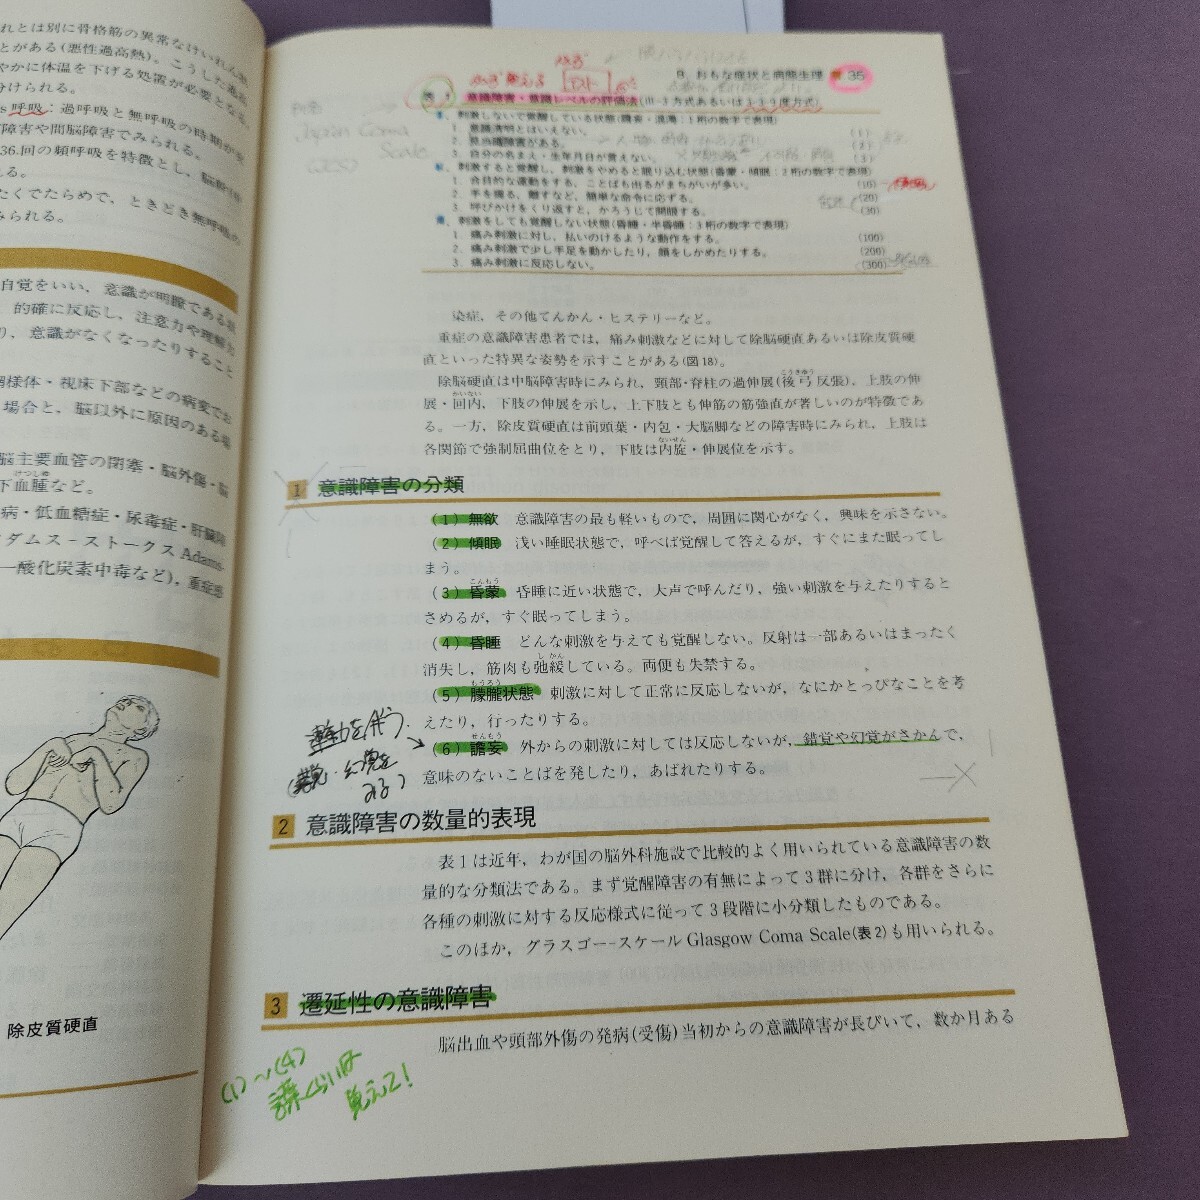 れとは別に骨格筋の異常なけいれん
とがある(悪性過高熱)。こうした
やかに体温を下げる処置が必要となる
分けられる。
s呼吸：過呼吸と無呼吸の時期が
障害や間脳障害でみられる。
36.回の頻呼吸を特徴とし，脳幹
れる。
たくでたらめで，ときどき無呼吸の
みられる。
自覚をいい，意識が明瞭である
的確に反応し，注意力や理解力
り，意識がなくなったりすること
網様体・視床下部などの病変でお
場合と，脳以外に原因のある場
脳主要血管の閉塞・脳外傷・脳
下血腫など。
病・低血糖症・尿毒症・肝臓障
ダムス-ストークス Adams-
一酸化炭素中毒など)，重症感
除皮質硬直
B．おもな症状と病態生理 35
テスト
Japan Coma
Scale
表1 意識障害・意識レベルの評価法(III-3方式あるいは3-3-9度方式)
I．刺激しないで覚醒している状態(譫妄・混濁：1桁の数字で表現)
1．意識清明とはいえない。 (1)
2．見当識障害がある。 (2)
3．自分の名まえ・生年月日が言えない。 (3)
II．刺激すると覚醒し，刺激をやめると眠り込む状態(昏蒙・傾眠：2桁の数字で表現)
1．合目的な運動をする，ことばも出るがまちがいが多い。 (10)
2．手を握る，離すなど，簡単な命令に応ずる。 (20)
3．呼びかけをくり返すと，かろうじて開眼する。 (30)
III．刺激をしても覚醒しない状態(昏睡・半昏睡：3桁の数字で表現)
1．痛み刺激に対し，払いのけるような動作をする。 (100)
2．痛み刺激で少し手足を動かしたり，顔をしかめたりする。 (200)
3．痛み刺激に反応しない。 (300)
染症，その他てんかん・ヒステリーなど。
重症の意識障害患者では，痛み刺激などに対して除脳硬直あるいは除皮質硬
直といった特異な姿勢を示すことがある(図18)。
除脳硬直は中脳障害時にみられ，頸部・脊柱の過伸展(後弓反張)，上肢の伸
展・回内，下肢の伸展を示し，上下肢とも伸筋の筋強直が著しいのが特徴であ
る。一方，除皮質硬直は前頭葉・内包・大脳脚などの障害時にみられ，上肢は
各関節で強制屈曲位をとり，下肢は内旋・伸展位を示す。
1 意識障害の分類
(1) 無欲 意識障害の最も軽いもので，周囲に関心がなく，興味を示さない。
(2) 傾眠 浅い睡眠状態で，呼べば覚醒して答えるが，すぐにまた眠ってし
まう。
(3) 昏蒙 昏睡に近い状態で，大声で呼んだり，強い刺激を与えたりすると
さめるが，すぐ眠ってしまう。
(4) 昏睡 どんな刺激を与えても覚醒しない。反射は一部あるいはまったく
消失し，筋肉も弛緩している。両便も失禁する。
(5) 朦朧状態 刺激に対して正常に反応しないが，なにかとっぴなことを考
えたり，行ったりする。
(6) 譫妄 外からの刺激に対しては反応しないが，錯覚や幻覚がさかんで，
意味のないことばを発したり，あばれたりする。
2 意識障害の数量的表現
表1は近年，わが国の脳外科施設で比較的よく用いられている意識障害の数
量的な分類法である。まず覚醒障害の有無によって3群に分け，各群をさらに
各種の刺激に対する反応様式に従って3段階に小分類したものである。
このほか，グラスゴー-スケール Glasgow Coma Scale(表2)も用いられる。
3 遷延性の意識障害
脳出血や頭部外傷の発病(受傷)当初からの意識障害が長びいて，数か月ある
(1)〜(4)
覚えて！